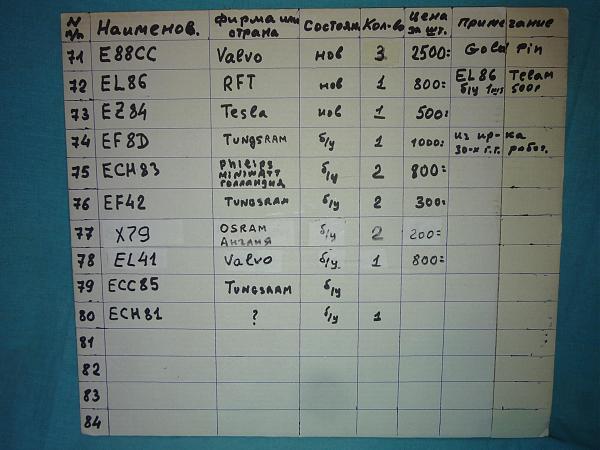 N п/п Наименов. фирма или страна Состоян. Кол-во Цена за шт. примечание
71 E88CC Valvo нов 3 2500= Gold Pin
72 EL86 RFT нов 1 800= EL86 Telam б/у 1шт 500р
73 EZ84 Tesla нов 1 500=
74 EF8D TUNGSRAM б/у 1 1000= из пр-ка 30-х г.г. работ.
75 ECH83 Philips MINIWATT голландия б/у 2 800=
76 EF42 TUNGSRAM б/у 2 300=
77 X79 OSRAM Англия б/у 2 200=
78 EL41 Valvo б/у. 1 800=
79 ECC85 TUNGSRAM б/у
80 ECH81 ? б/у 1
81
82
83
84